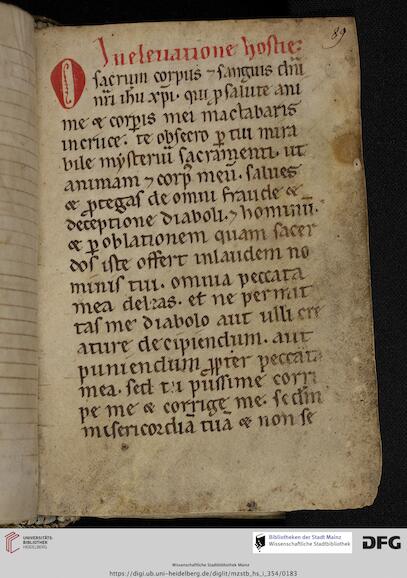 89
In eleuatione hostie:
O sacrum corpus ⁊ sanguis dn̄i
nr̄i ihū xp̄i. qui p salute ani
me ⁊ corpis mei mactabaris
in cruce. te obsecro p tui mira
bile mysteriū sacramenti. ut
animam ⁊ corp̄ meū. salues
⁊ ptegas de omni fraude ⁊
deceptione diaboli. ⁊ hominū.
⁊ p oblationem quam sacer
dos iste offert in laudem no
minis tui. omnia peccata
mea deleas. et ne permit
tas me diabolo aut ulli cre
ature decipiendum. aut
puniendum ppter peccata
mea. sed tu piissime corri
pe me ⁊ corrige me. scdm
misericordiā tuā ⁊ non se
UNIVERSITÄTS-
BIBLIOTHEK
HEIDELBERG
Bibliotheken der Stadt Mainz
Wissenschaftliche Stadtbibliothek
DFG
Wissenschaftliche Stadtbibliothek Mainz
https://digi.ub.uni-heidelberg.de/diglit/mzstb_hs_i_354/0183